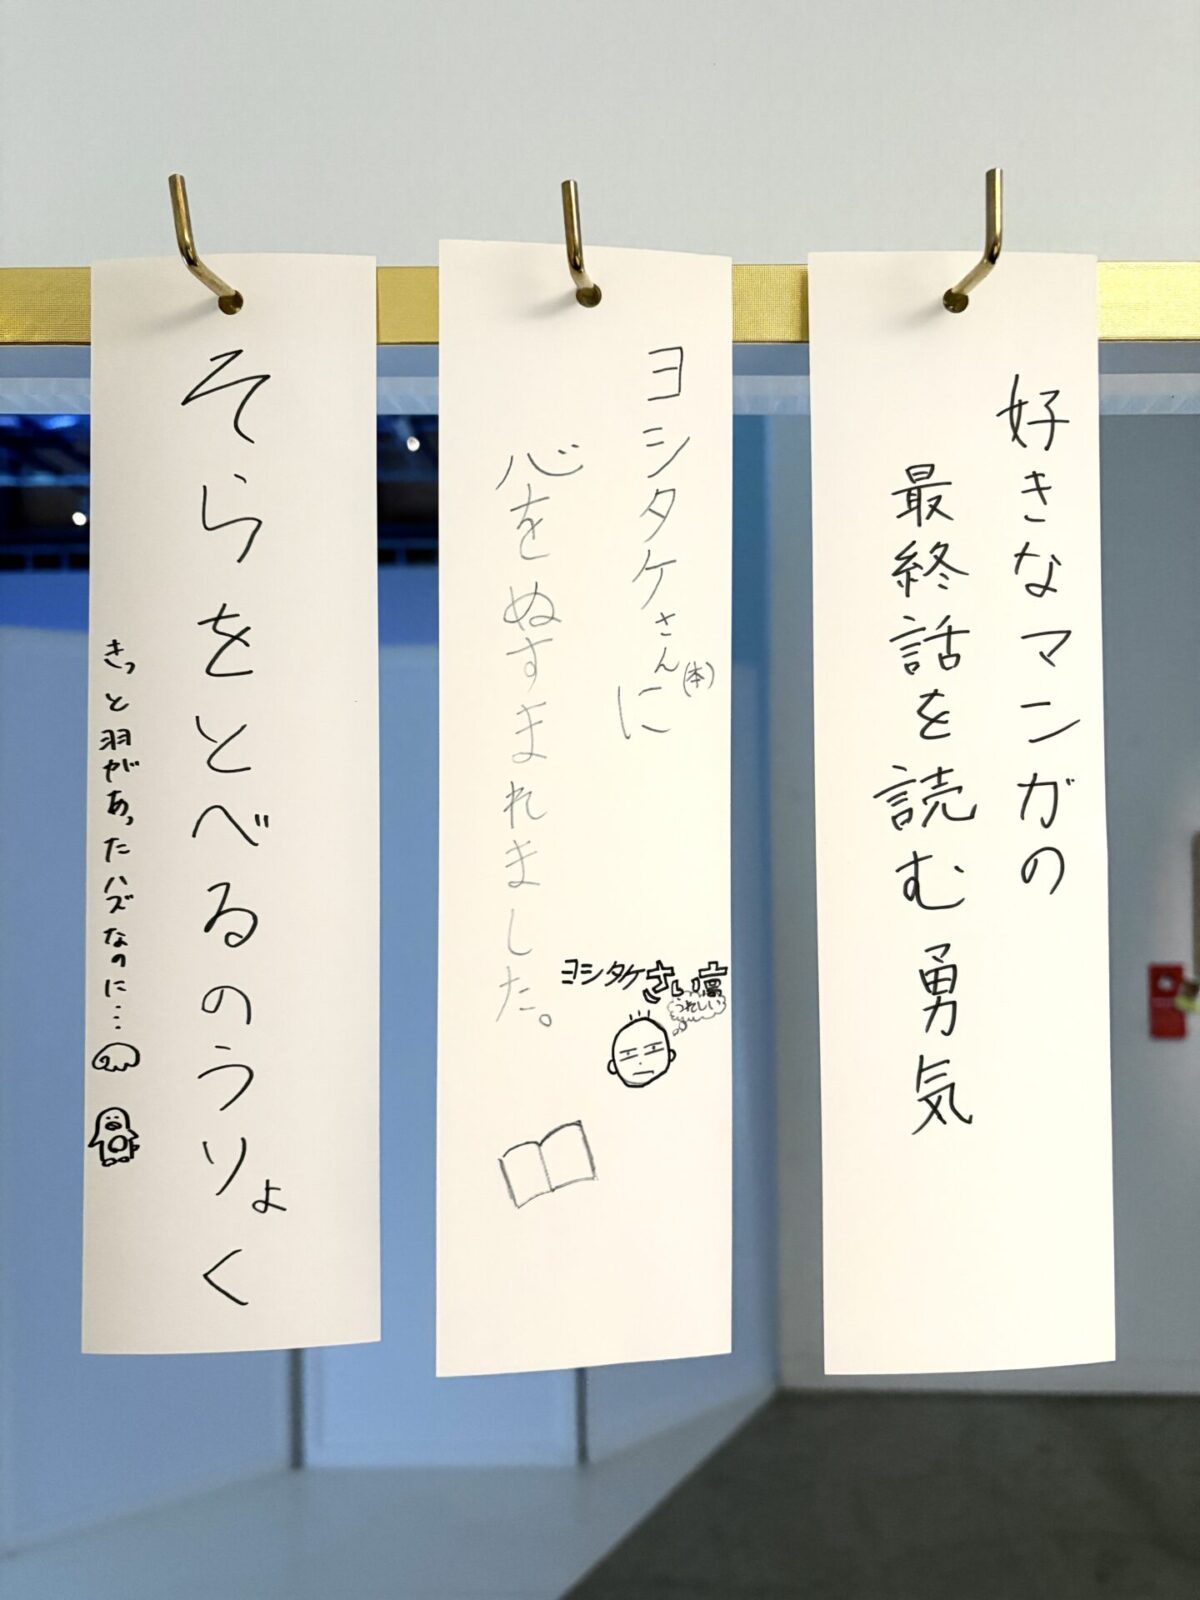 好きなマンガの
最終話を読む勇気
ヨシタケさんに
(本)
心をぬすまれました。
ヨシタケ
うれしい
そらをとべるのうりょく
きっと羽があったハズなのに…